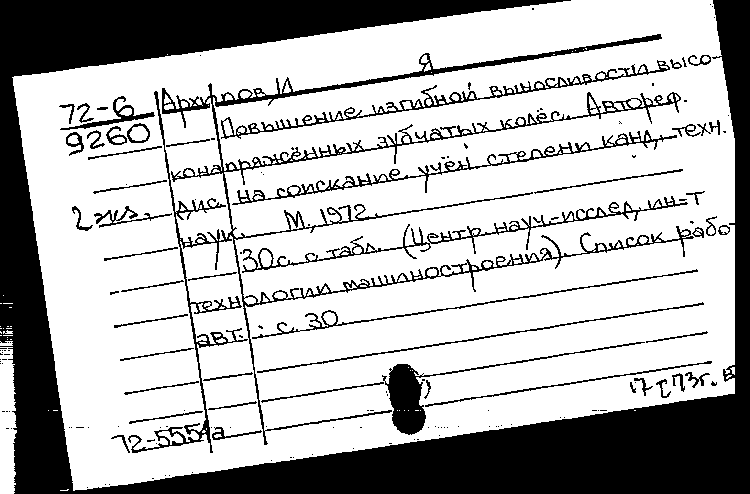 72-6
9260
2 экз.
Архипов, И Я
Повышение изгибной выносливости высо-
конапряжённых зубчатых колёс. Автореф.
дис. на соискание учён степени канд. техн.
наук. М, 1972.
30с. с табл. (Центр науч-исслед. ин-т
технологии машиностроения). Список рабо
авт.: с. 30.
72-5554а
73г.